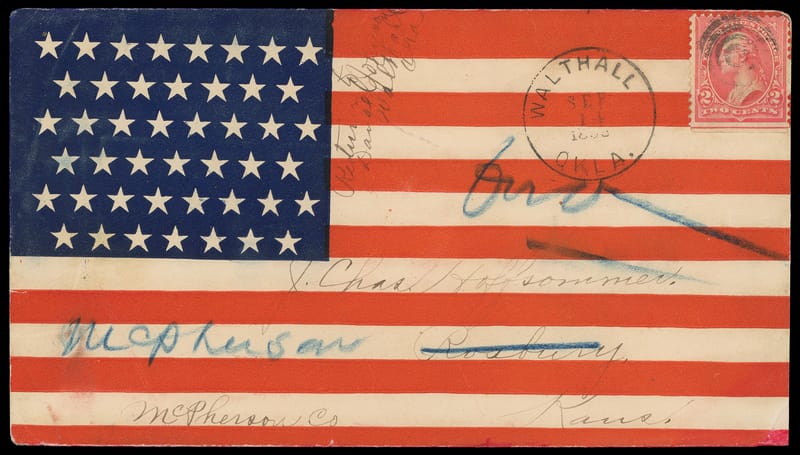 WALTHALL
SEP
OKLA.
2 2
TWO CENTS
Return to
Chas. Hoffsommer.
McPherson
Roxbury,
McPherson Co
Kans.